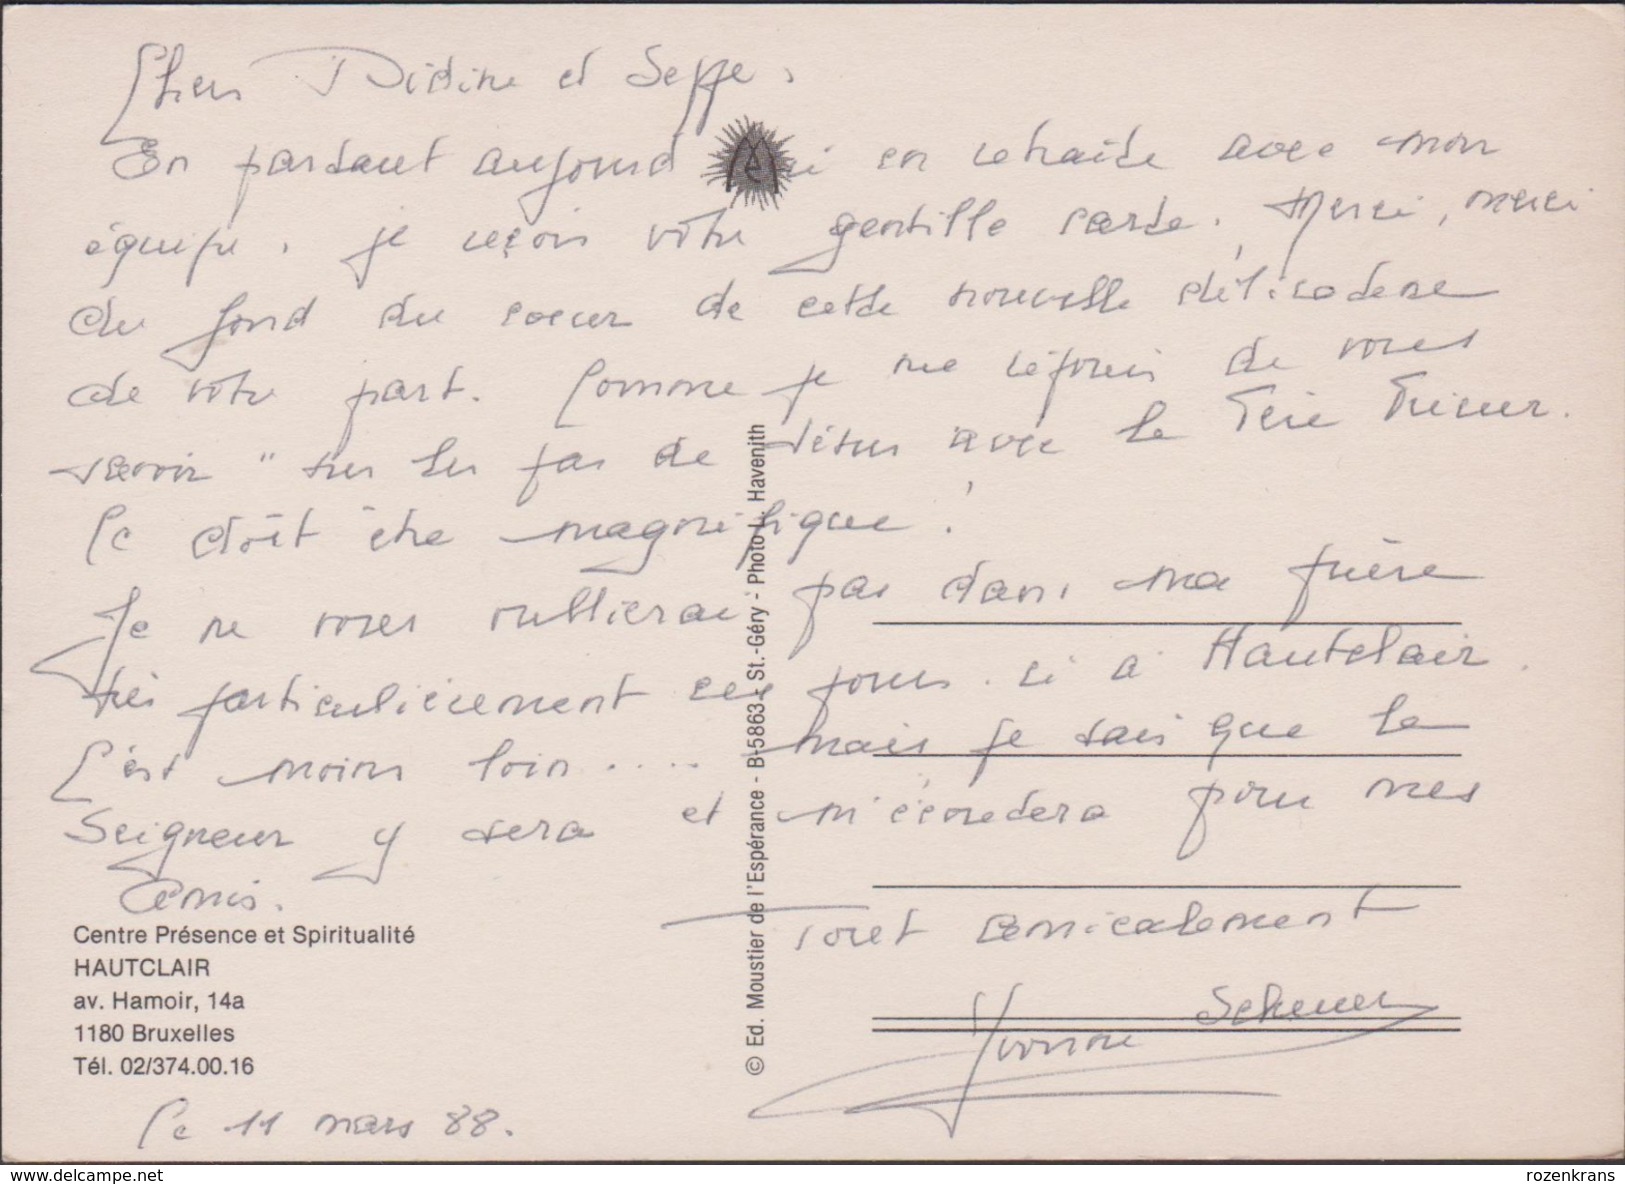 Chers Didine et Seppe,
En partant aujourd'hui en retraite avec mon
équipe, je reçois votre gentille carte. Merci, merci
du fond du coeur de cette nouvelle délicatesse
de votre part. Comme je me réjouis de vous
savoir "sur les pas de Jésus avec le Père Prieur.
Ce doit être magnifique!
Je ne vous oublierai pas dans ma prière
très particulièrement ces jours-ci à Hautclair.
C'est moins loin.... mais je sais que le
Seigneur y sera et m'écoutera pour mes
amis.
Tout amicalement
Yvonne
Centre Présence et Spiritualité
HAUTCLAIR
av. Hamoir, 14a
1180 Bruxelles
Tél. 02/374.00.16
Le 11 mars 88.
© Ed. Moustier de l'Espérance - B-5863 - St.-Géry - Photo L. Havenith
delcampe.net
rozenkrans